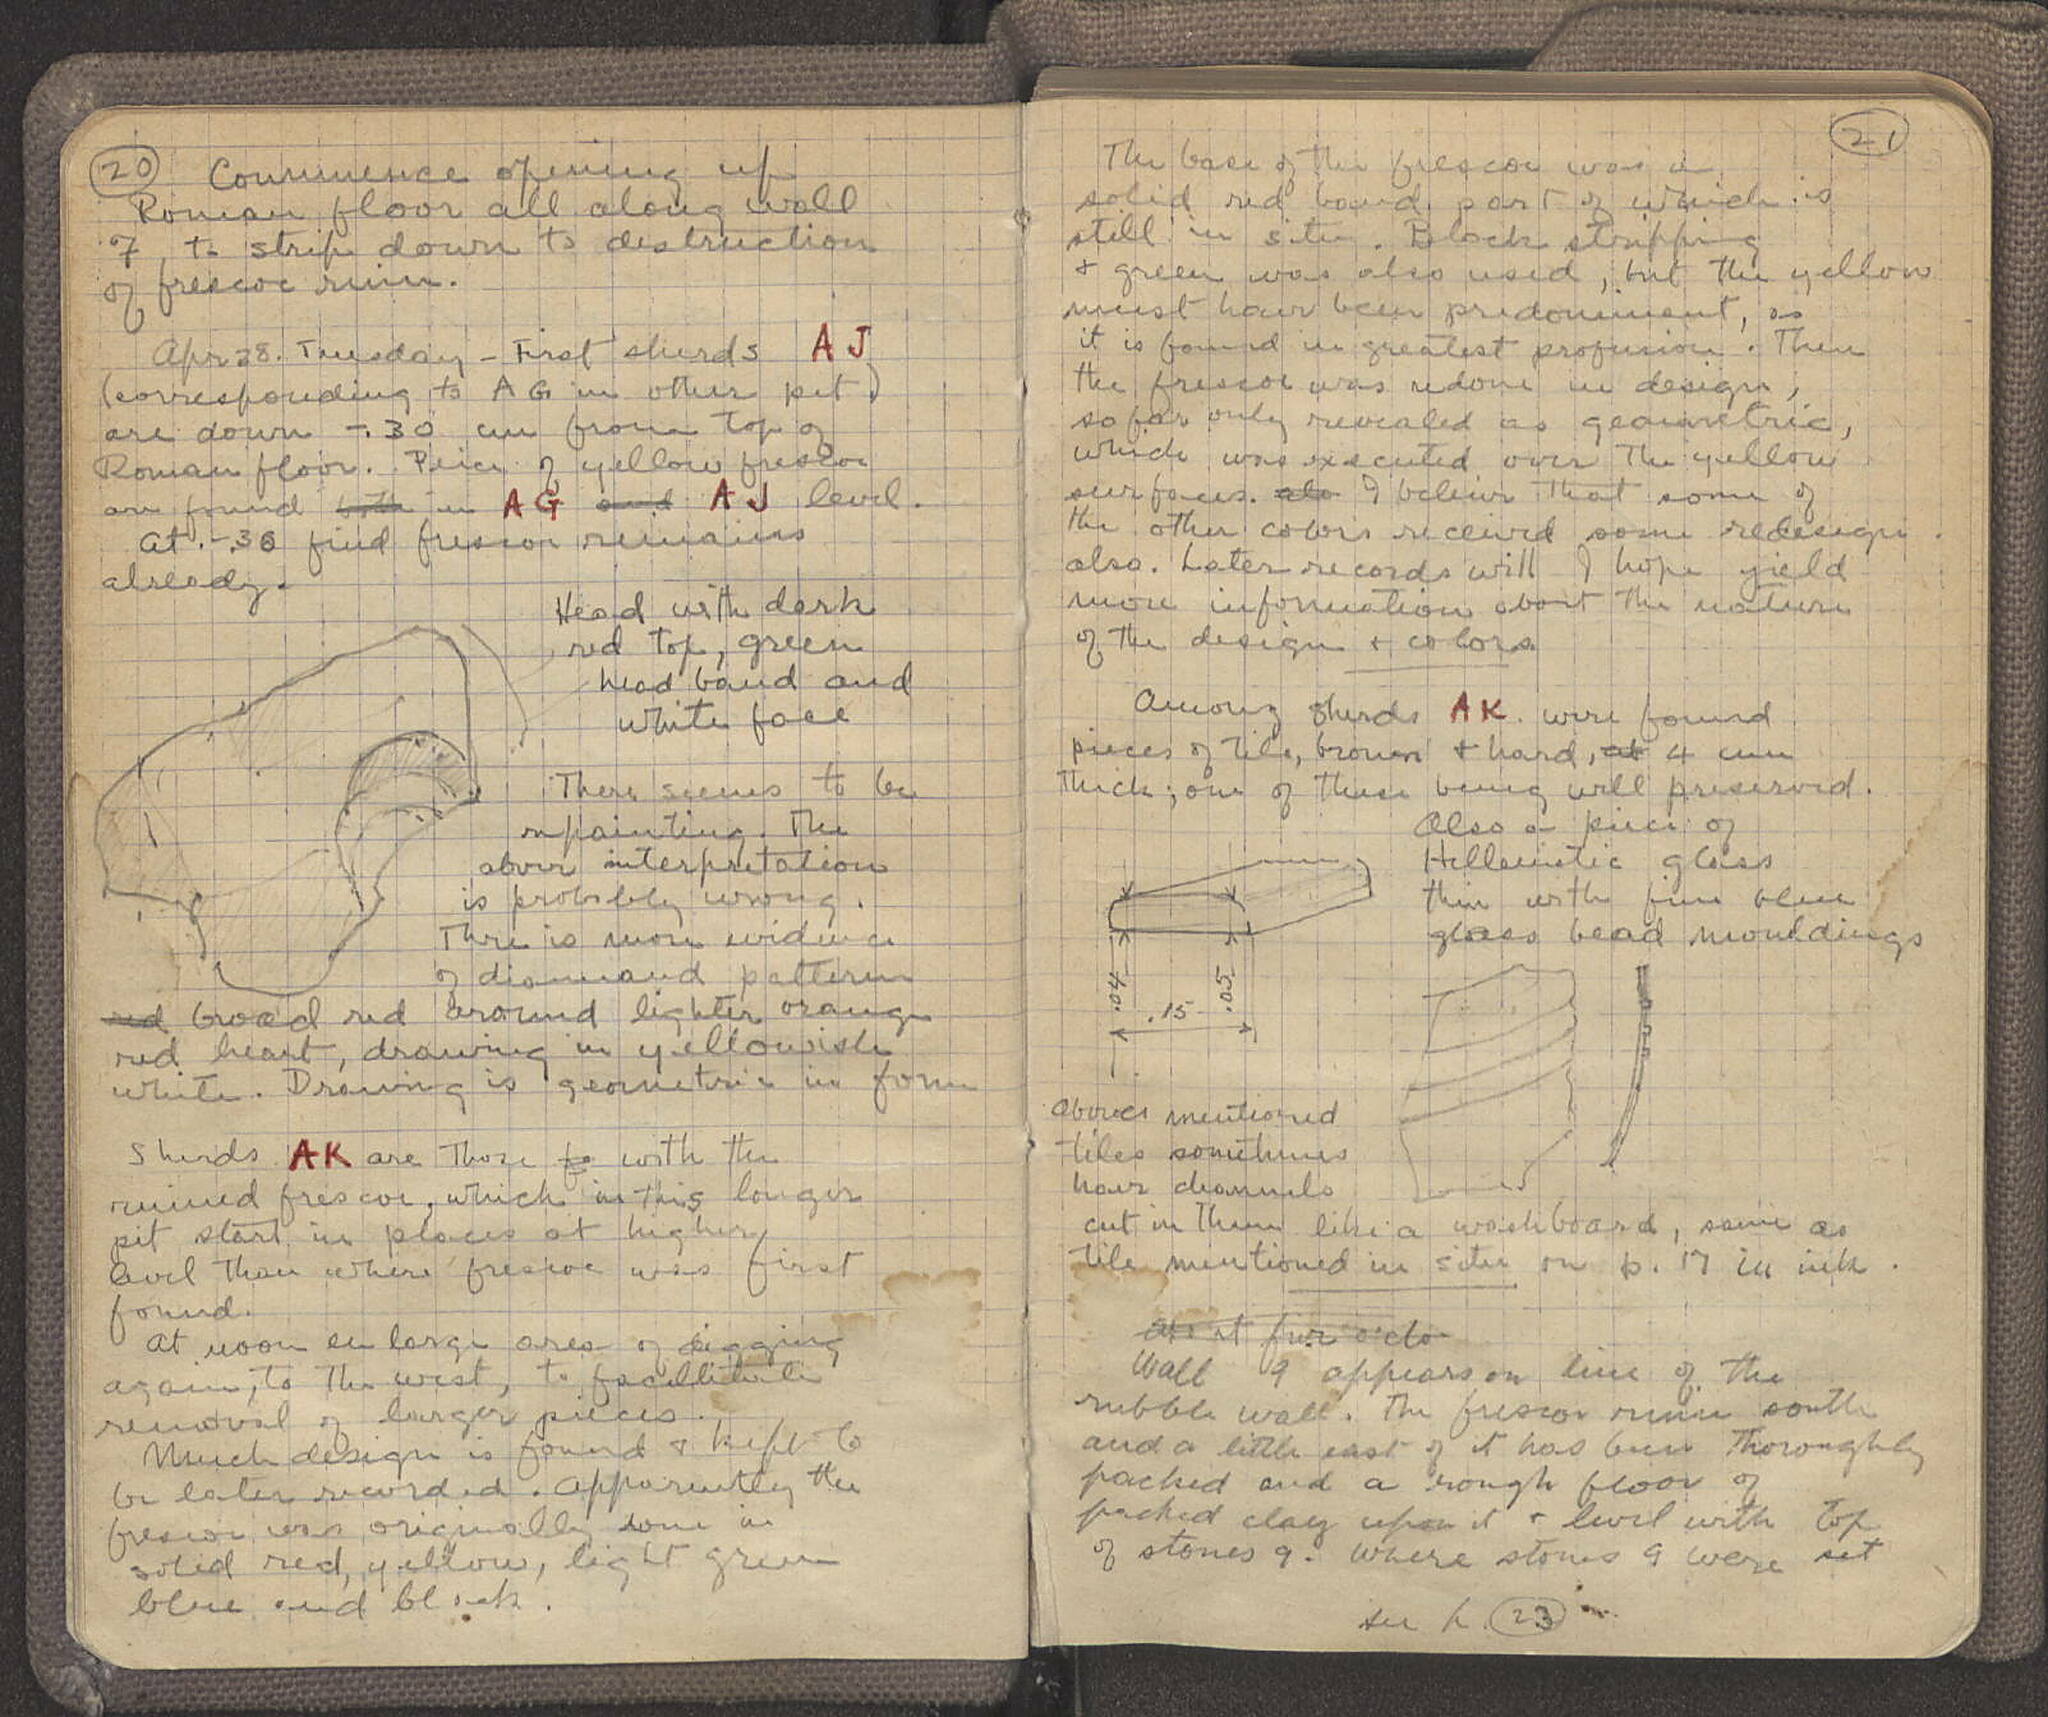 20
Commence opening up
Roman floor all along wall
7, to strip down to destruction
of frescoe ruin.
Apr 28. Tuesday - First sherds AJ
(corresponding to AG in other pit)
are down -.30 cm from top of
Roman floor. Peice of yellow frescoe
are found both in AG and AJ level.
At -.36 find frescoe remains
already.
Head with dark
red top, green
head band and
white face
There seems to be
repainting. The
above interpretation
is probably wrong.
There is more evidence
of diamand pattern
red broad red around lighter orange
red heart, drawing in yellowish
white. Drawing is geometric in form
Sherds AK are those fo with the
ruined frescoe, which in this longer
pit start in places at higher
level than where frescoe was first
found.
At noon enlarge area of digging
again, to the west, to facillitate
removal of larger pieces.
Much design is found & kept to
be later recorded. Apparently the
frescoe was originally done in
solid red, yellow, light green
blue and black.
21
The base of the frescoe was a
solid red band, part of which is
still in situ. Black stripping
& green was also used, but the yellow
must have been predominent, as
it is found in greatest profusion. Then
the frescoe was redone in design,
so far only revealed as geometric,
which was executed over the yellow
surfaces. also I believe that some of
the other colors received some redesign
also. Later records will I hope yield
more information about the nature
of the design & colors.
Among sherds AK were found
pieces of tile, brown & hard, at 4 cm
thick; one of these being well preserved.
Also a piece of
Hellenistic glass
thin with fine blue
glass bead mouldings
.04
.15
.05
Above mentioned
tiles sometimes
have channels
cut in them like a washboard, same as
tile mentioned in situ on p. 17 in ink.
at four o'clo
Wall 9 appears on line of the
rubble wall. The frescoe ruin south
and a little east of it has been thoroughly
packed and a rough floor of
packed clay upon it & level with top
of stones 9. Where stones 9 were set
see p. 23